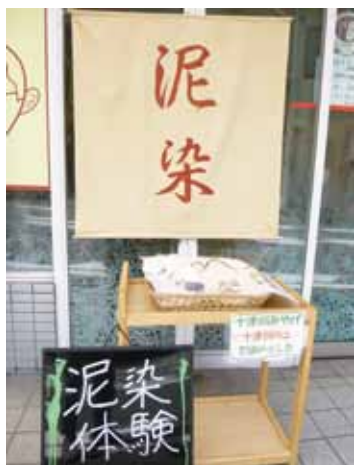 泥
染
泥染
体験